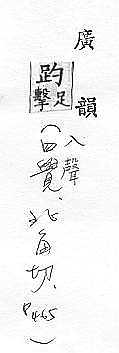 廣韻
趵
足
擊
入聲
(四覺、北角切、P465)